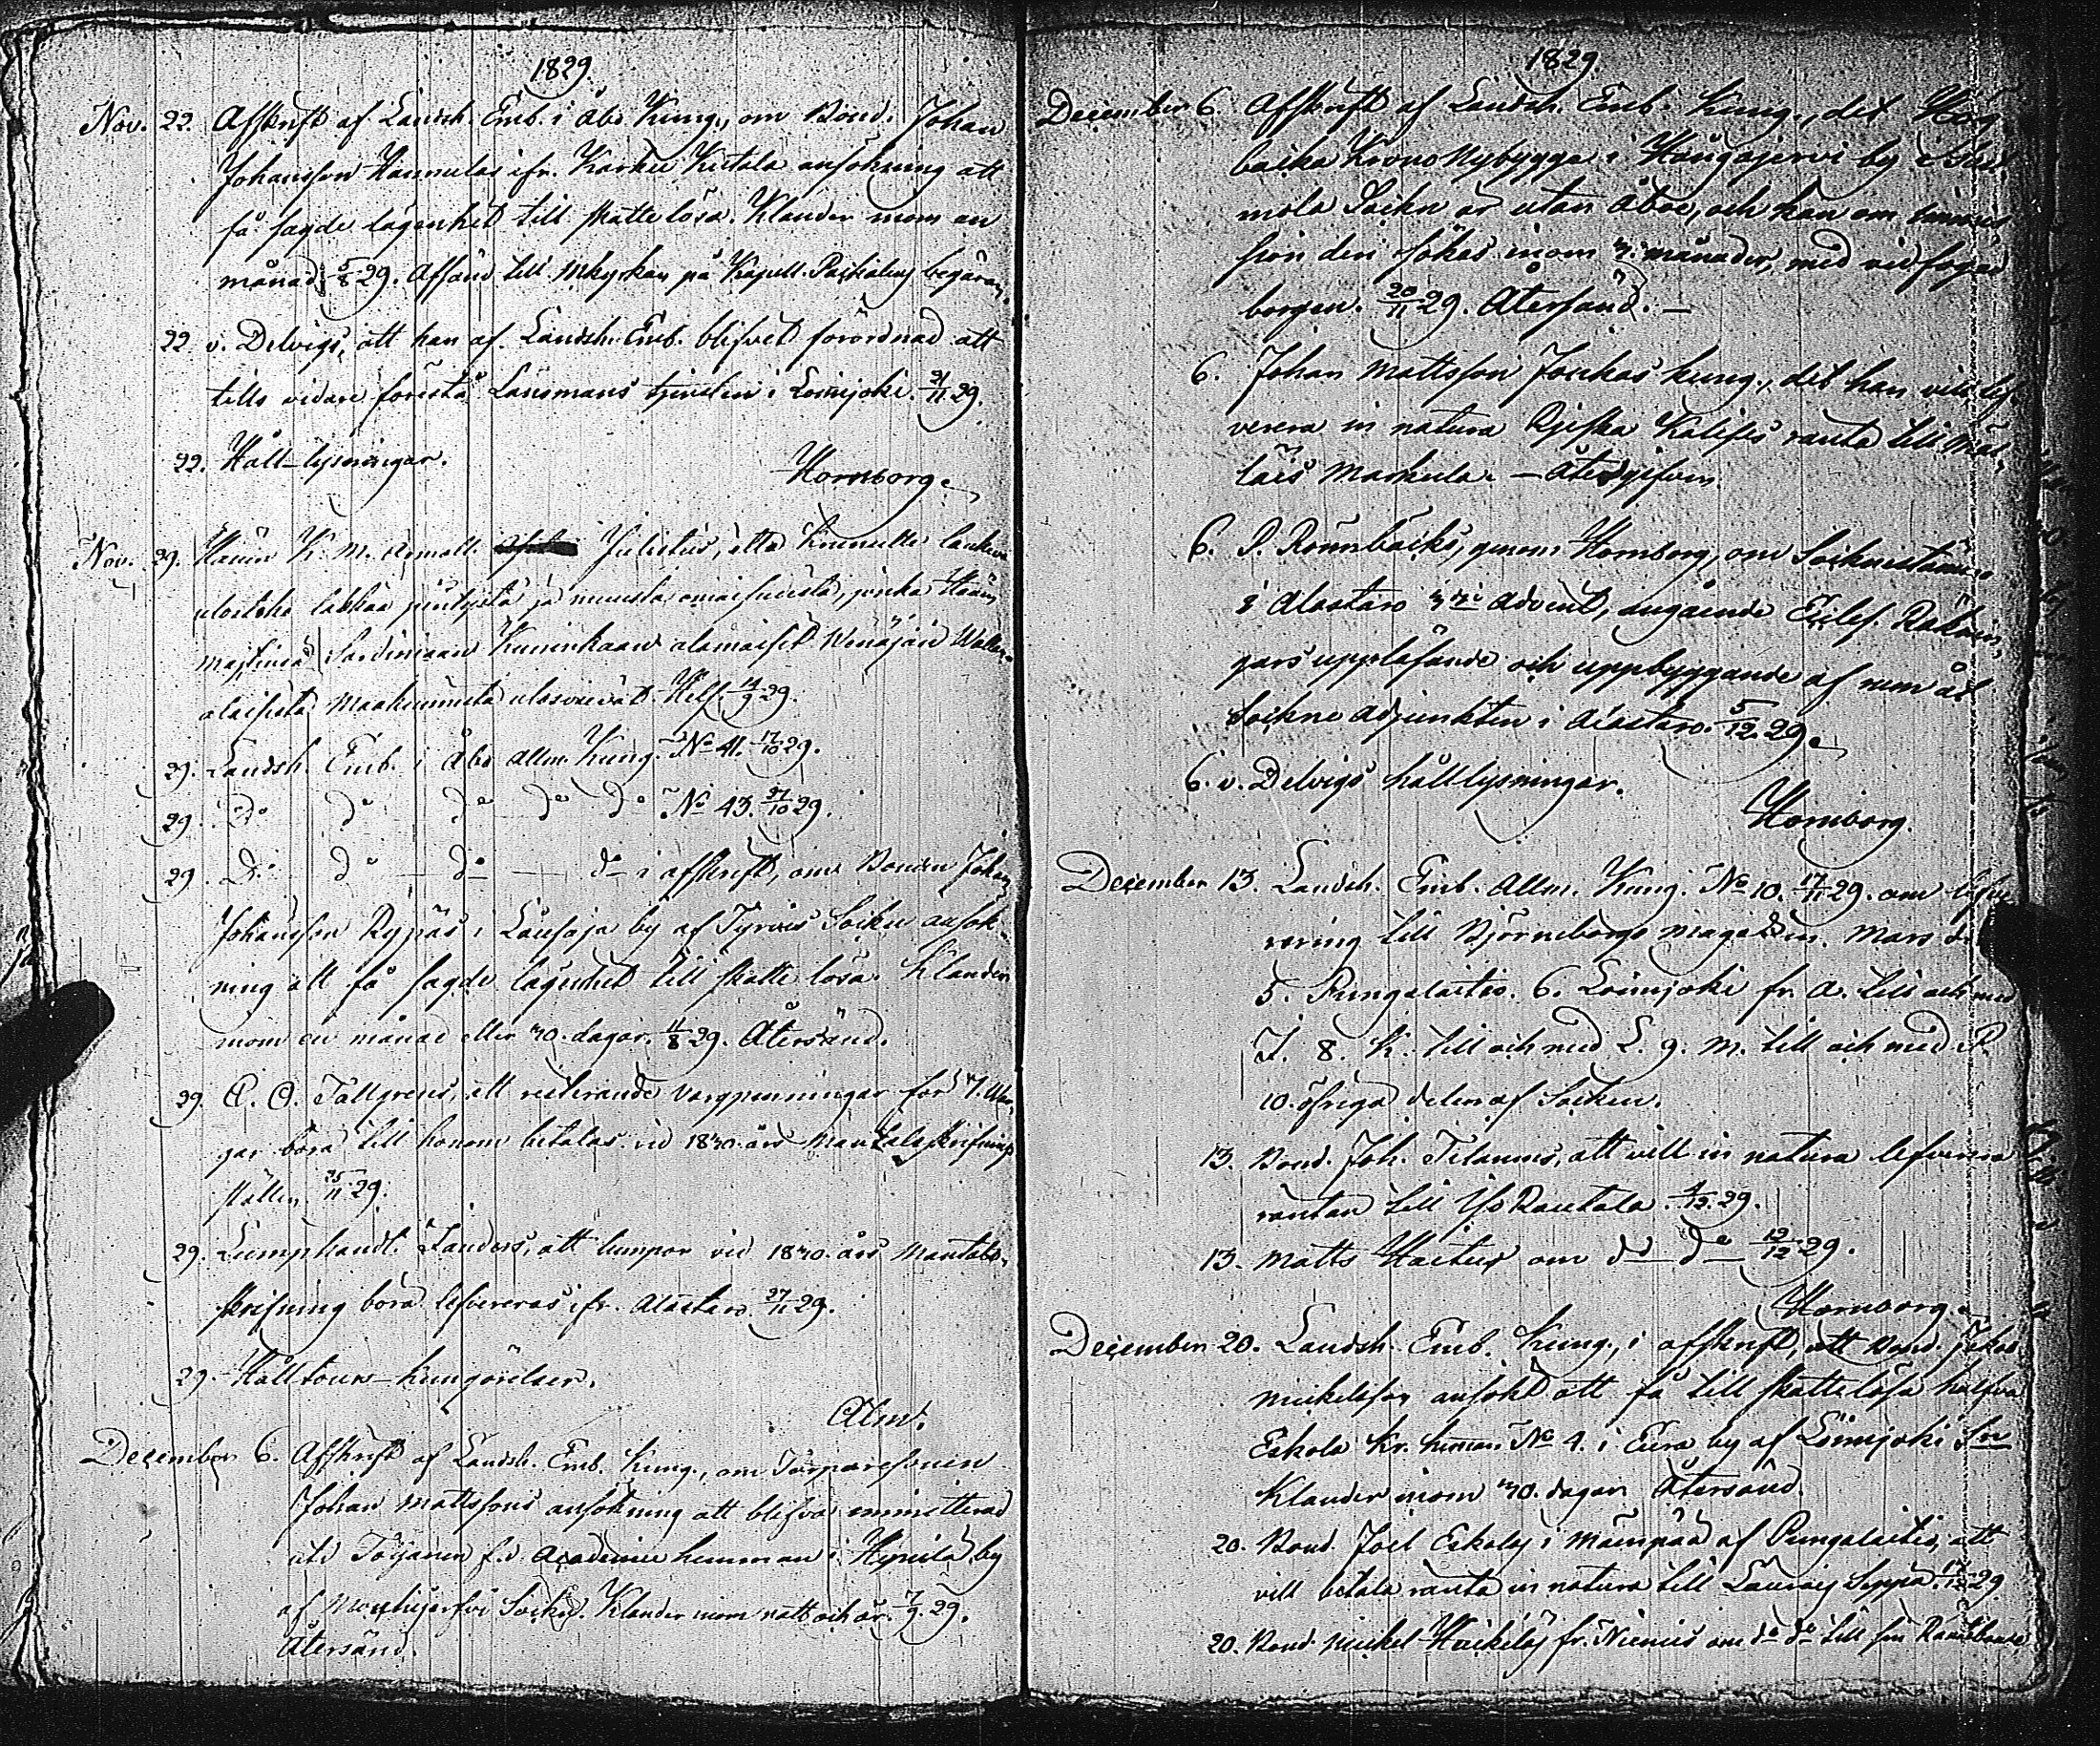 1829.
Nov. 22. Afskrift af Landsh. Emb. i Åbo Kung., om Bond. Johan
Johansson Hannulas ifr. Karku Kutala ansökning att
få sagde lägenhet till skatte lösa. Klander inom en
månad 5/8 29. Afsänd till Mkyrkan på Kapell. begäran.
22. v. Delvigs, att han af Landsh. Emb. blifvet förordnad att
tills vidare förestå Länsmans tjensten i Loimjoki. 21/11 29.
22. Håll-lysningar.
Hornborg.
Nov. 29. Hänen K. M. Armoll. Julistus, että
ulosteko lakkaa ja muista omaisuuista, jonka Hään
Majstinsä Sardiniaan Kuninkaan alamaiset Wenäjän Wallan-
alaisesta Maakunnista ulosvievät. Hels. 14/9 29.
29. Landsh. Emb. i Åbo Allm. Kung. No 41. 17/10 29.
29. Do do do do do No 43. 27/10 29.
29. Do do do do i afskrift, om Bonden Johan
Johansson Rypäs i Lausaja by af Tyrvis Sockn ansök-
ning att få sagde lägenhet till skatte lösa. Klander
inom en månad eller 30. dagar. 11/8 29. Återsänd.
29. C. O. Tallgrens, att resterande vargpenningar för 7. War-
gar böra till honom betalas vid 1830. års Mantalsskrifnings
ställen 25/11 29.
29. Lumphandl. Landers, att lumpor vid 1830. års Mantals-
skrifning böra lefvereras ifr. Alastaro 27/11 29.
29. Hålltours-kungörelser.
Alm.
December 6. Afskrift af Landsh. Emb. Kung., om Torparesonen
Johan Mattssons ansökning att blifva immitterad
uti f.d. Academie hemman i by
af Mouhijerfvi Sockn. Klander inom natt och år. 7/9. 29.
Återsänd.
1829.
December 6. Afskrift af Landsh. Emb. Kung., det
backa Krono Nybygge i by
Sockn är utan åboe, och kan om
sion den sökas inom 3. månader, med vidfogad
borgen. 20/11 29. Återsänd.
6. Johan Mattsson Joukas kung., det han vill lef-
verera in natura ränta till
Markula. — Återgifven.
6. P. Rönnbäcks, genom Hornborg, om Sockenstämma
i Alastaro 3die Advent, angående Räknin-
gars uppläsande och uppbyggande af rum åt
Sockne Adjunkten i Alastaro. 5/12. 29.
6. v. Delvigs hålllysningar.
Hornborg.
December 13. Landsh. Emb. Allm. Kung. No 10. 17/11 29. om lefve-
rering till Björneborgs magazin. Mars d.
5. Pungalaitio. 6. Loimjoki fr. A. till och med
J. 8. K. till och med L. 9. M. till och med P.
10. öfriga delen af Socken.
13. Bond. Joh. Tilanens, att vill in natura lefverera
räntan till Yso Rautala. 4/12. 29.
13. Matts om do do 12/12 29.
Hornborg.
December 20. Landsh. Emb. Kung., i afskrift, att Bond. Jakob
Mickelsson ansökt att få till skatte lösa halfva
Eskola Kr. heman No 4. i Eura by af Loimjoki Sn
Klander inom 30. dagar. Återsänd.
20. Bond. Joel Eskola, i Mäenpää af Pungalaitio, att
vill betala ränta in natura till Seppä. 12/12 29
20. Bond. Mickel Heikelä fr. Niemis om do do till sin